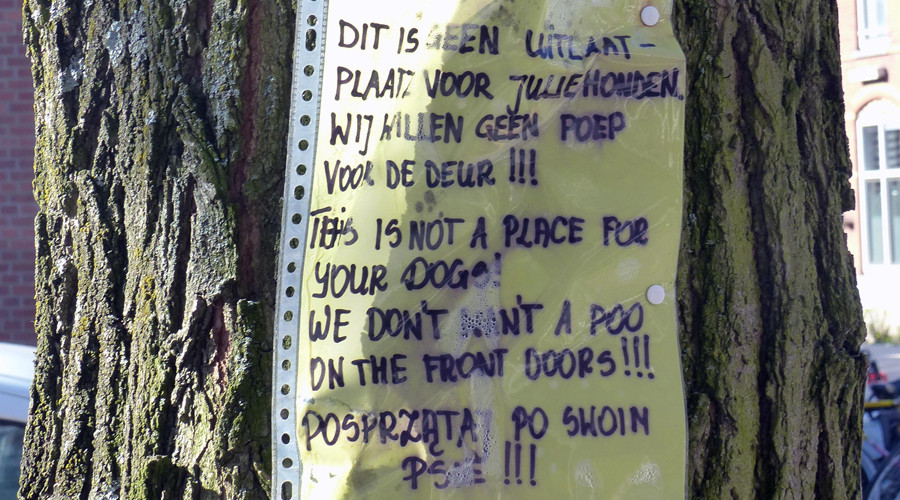 DIT IS GEEN UITLAAT-
PLAATZ VOOR JULLIE HONDEN.
WIJ WILLEN GEEN POEP
VOOR DE DEUR !!!
THIS IS NOT A PLACE FOR
YOUR DOGS!
WE DON'T WANT A POO
ON THE FRONT DOORS!!!
POSPRZĄTAJ PO SWOIM
PSIE !!!